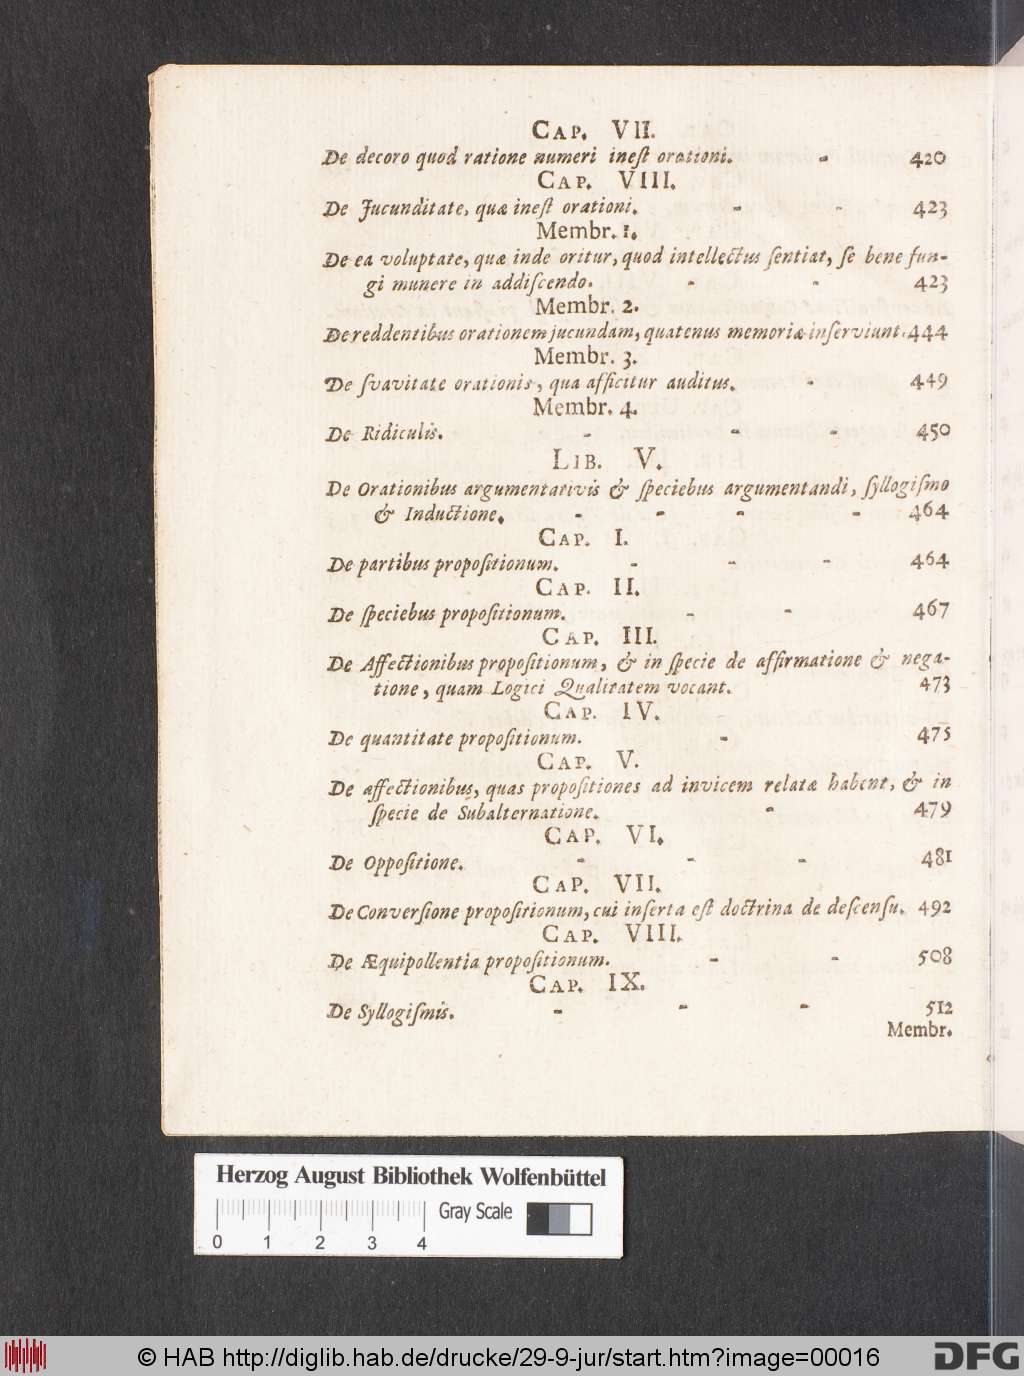 CAP. VII.
De decoro quod ratione numeri ineſt orationi. - 420
CAP. VIII.
De Jucunditate, quæ ineſt orationi. - - 423
Membr. 1.
De ea voluptate, quæ inde oritur, quod intellectus ſentiat, ſe bene fun-
gi munere in addiſcendo. - - 423
Membr. 2.
De reddentibus orationem jucundam, quatenus memoriæ inſerviunt. 444
Membr. 3.
De ſvavitate orationis, qua afficitur auditus. - 449
Membr. 4.
De Ridiculis. - - - 450
LIB. V.
De Orationibus argumentativis & ſpeciebus argumentandi, ſyllogiſmo
& Inductione. - - - - 464
CAP. I.
De partibus propoſitionum. - - - 464
CAP. II.
De ſpeciebus propoſitionum. - - 467
CAP. III.
De Affectionibus propoſitionum, & in ſpecie de affirmatione & nega-
tione, quam Logici Qualitatem vocant. 473
CAP. IV.
De quantitate propoſitionum. - 475
CAP. V.
De affectionibus, quas propoſitiones ad invicem relatæ habent, & in
ſpecie de Subalternatione. - 479
CAP. VI.
De Oppoſitione. - - - 481
CAP. VII.
De Converſione propoſitionum, cui inſerta eſt doctrina de deſcenſu. 492
CAP. VIII.
De Æquipollentia propoſitionum. - - 508
CAP. IX.
De Syllogiſmis. - - - 512
Membr.
Herzog August Bibliothek Wolfenbüttel
Gray Scale
0 1 2 3 4
© HAB http://diglib.hab.de/drucke/29-9-jur/start.htm?image=00016
DFG